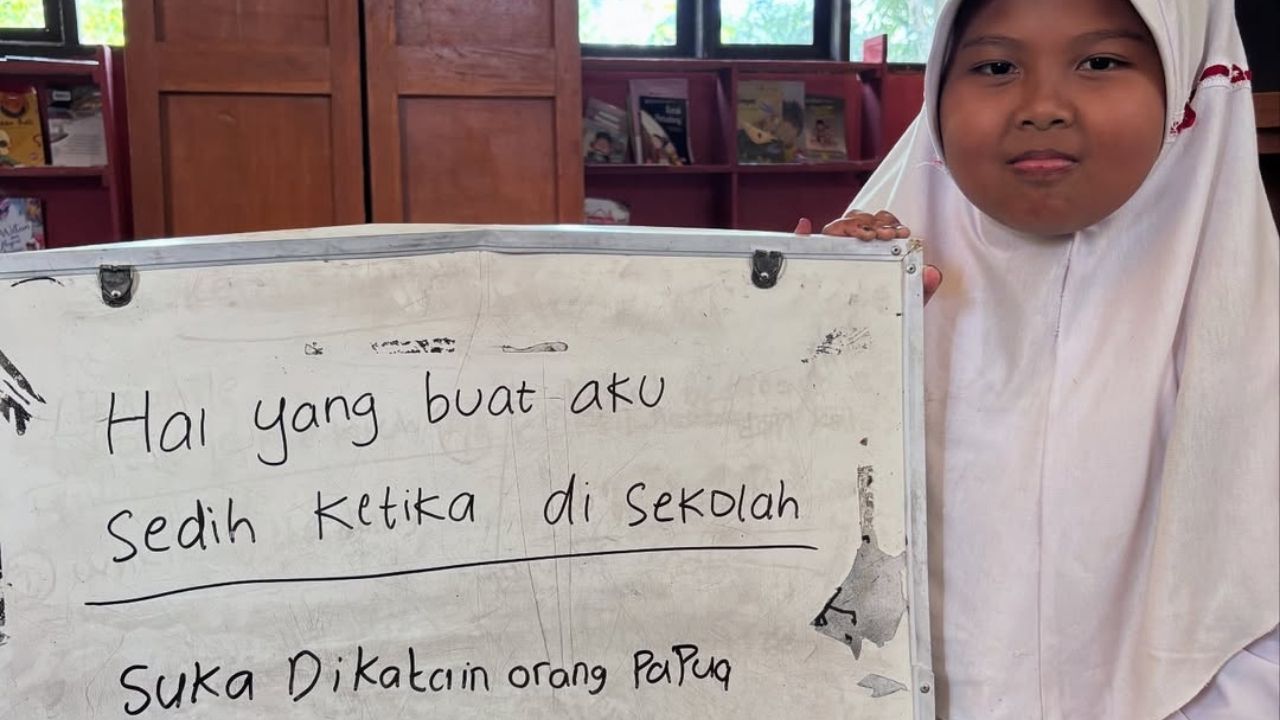 Hai yang buat aku
sedih ketika di sekolah
Suka Dikatain orang Papua